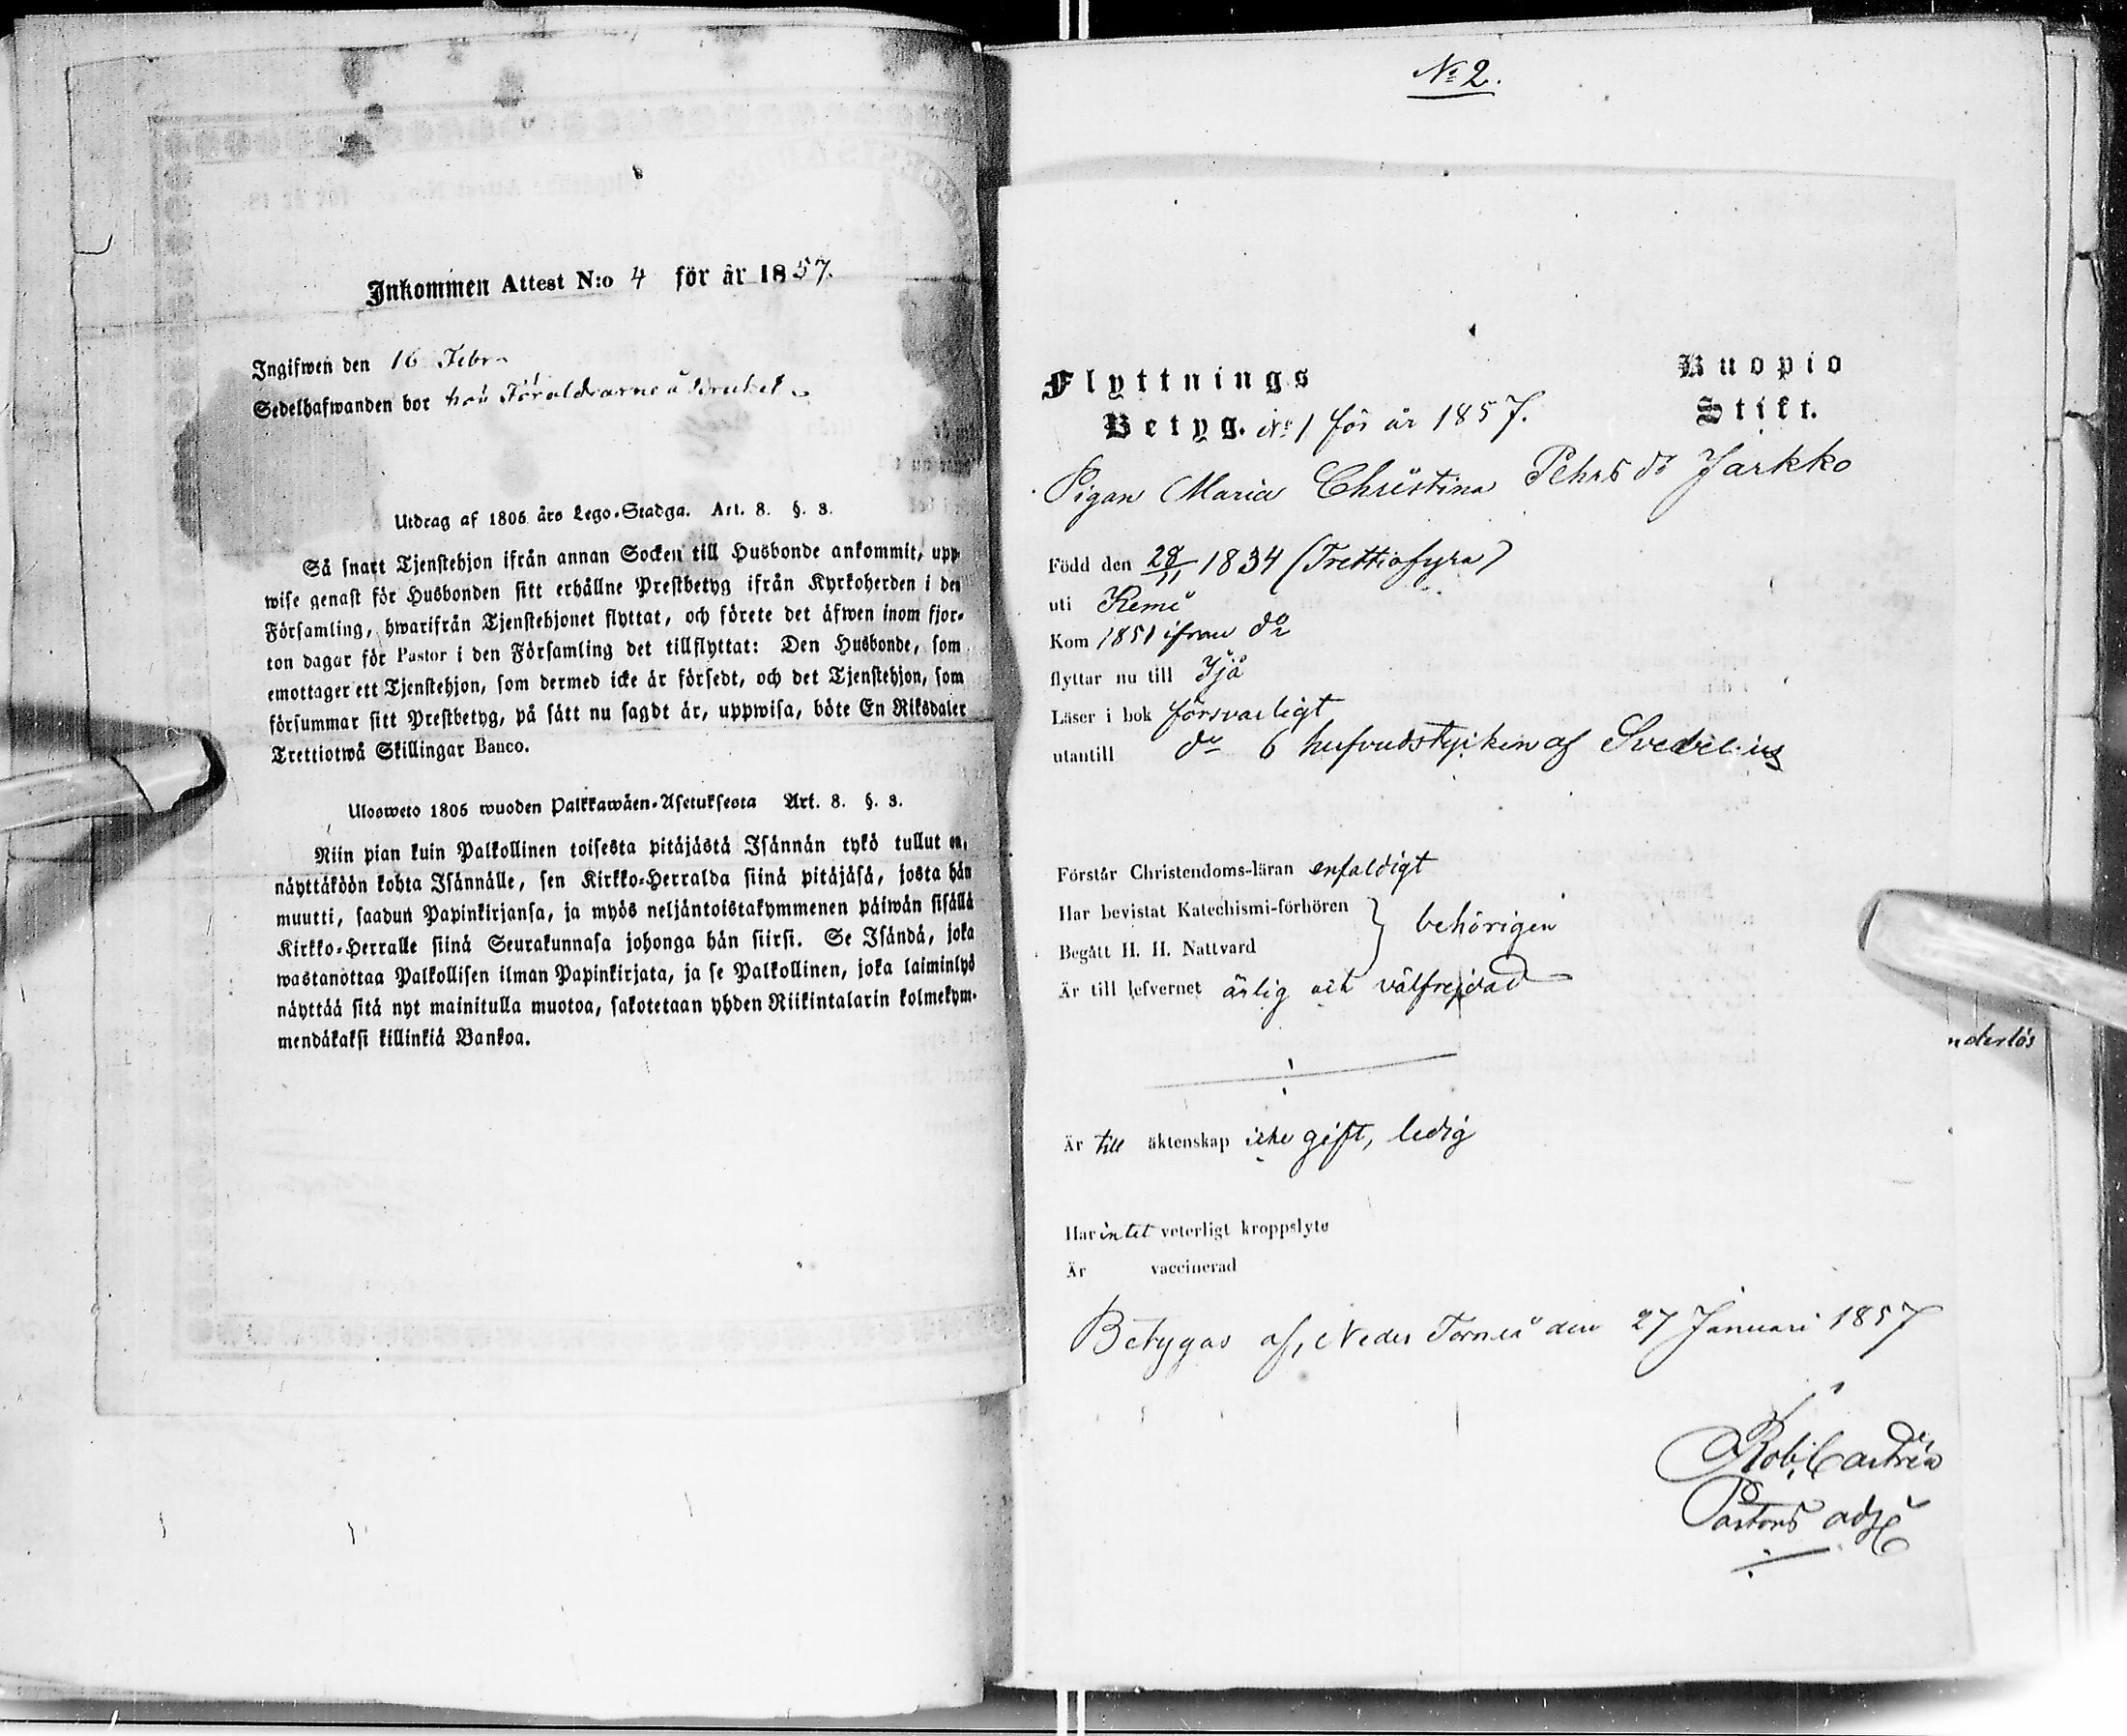 Inkommen Attest N:o 4 för år 1857.
Ingifwen den 16 Febr.
Sedelhafwanden bor hos Föräldrarne å Bruket
Utdrag af 1805 års Lego-Stadga. Art. 8. §. 3.
Så snart Tjenstehjon ifrån annan Socken till Husbonde ankommit, upp-
wise genast för Husbonden sitt erhållne Prestbetyg ifrån Kyrkoherden i den
Församling, hwarifrån Tjenstehjonet flyttat, och förete det äfwen inom fjor-
ton dagar för Pastor i den Församling det tillflyttat: Den Husbonde, som
emottager ett Tjenstehjon, som dermed icke är försedt, och det Tjenstehjon, som
försummar sitt Prestbetyg, på sätt nu sagdt är, uppwisa, böte En Riksdaler
Trettiotwå Skillingar Banco.
Ulosweto 1805 wuoden Palkkawäen-Asetuksesta Art. 8. §. 3.
Niin pian kuin Palkollinen toisesta pitäjästä Isännän tykö tullut on,
näyttäköön kohta Isännälle, sen Kirkko-Herralda siinä pitäjäsä, josta hän
muutti, saadun Papinkirjansa, ja myös neljäntoistakymmenen päiwän sisällä
Kirkko-Herralle siinä Seurakunnasa johonga hän siirsi. Se Isändä, joka
wastanottaa Palkollisen ilman Papinkirjata, ja se Palkollinen, joka laiminlyö
näyttää sitä nyt mainitulla muotoa, sakotetaan yhden Riikintalarin kolmekym-
mendäkaksi killinkiä Bankoa.
No 2.
Flyttnings
Betyg. No 1 för år 1857.
Kuopio
Stift.
Pigan Maria Christina Pehrs dr Jarkko
Född den 28/11 1834 (Trettiofyra)
uti Kemi
Kom 1851 ifrån do
flyttar nu till Ijå
Läser i bok försvarligt
utantill do 6 hufvudstycken af Svebelius
Förstår Christendoms-läran enfaldigt
Har bevistat Katechismi-förhören } behörigen
Begått H. H. Nattvard
Är till lefvernet ärlig och välfrejdad
nderlös
Är till äktenskap icke gift, ledig
Har intet veterligt kroppslyte
Är vaccinerad
Betygas af, Neder Torneå den 27 Januari 1857
Rob. Castrén
Pastors adj.